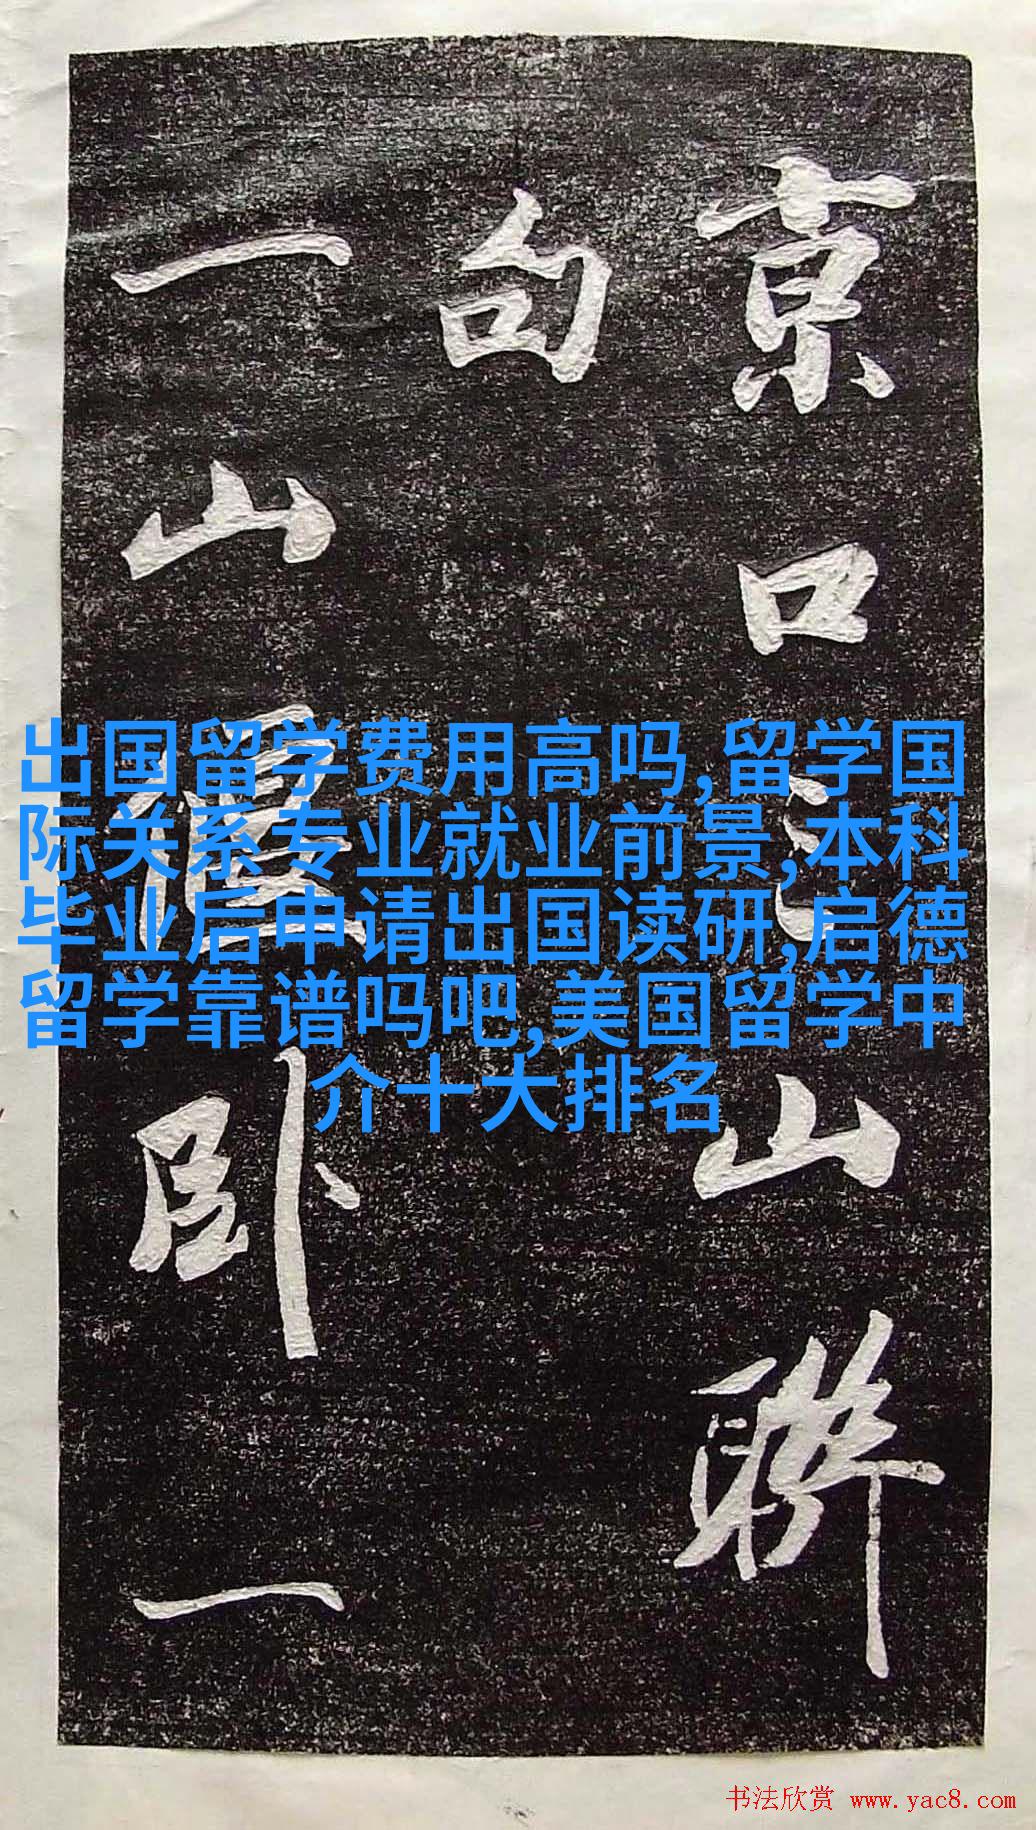 京口山聯
句
一山偃卧一
出国留学费用高吗,留学国
际关系专业就业前景,本科
毕业后申请出国读研,启德
留学靠谱吗吧,美国留学中
介十大排名
书法欣赏 www.yac8.com